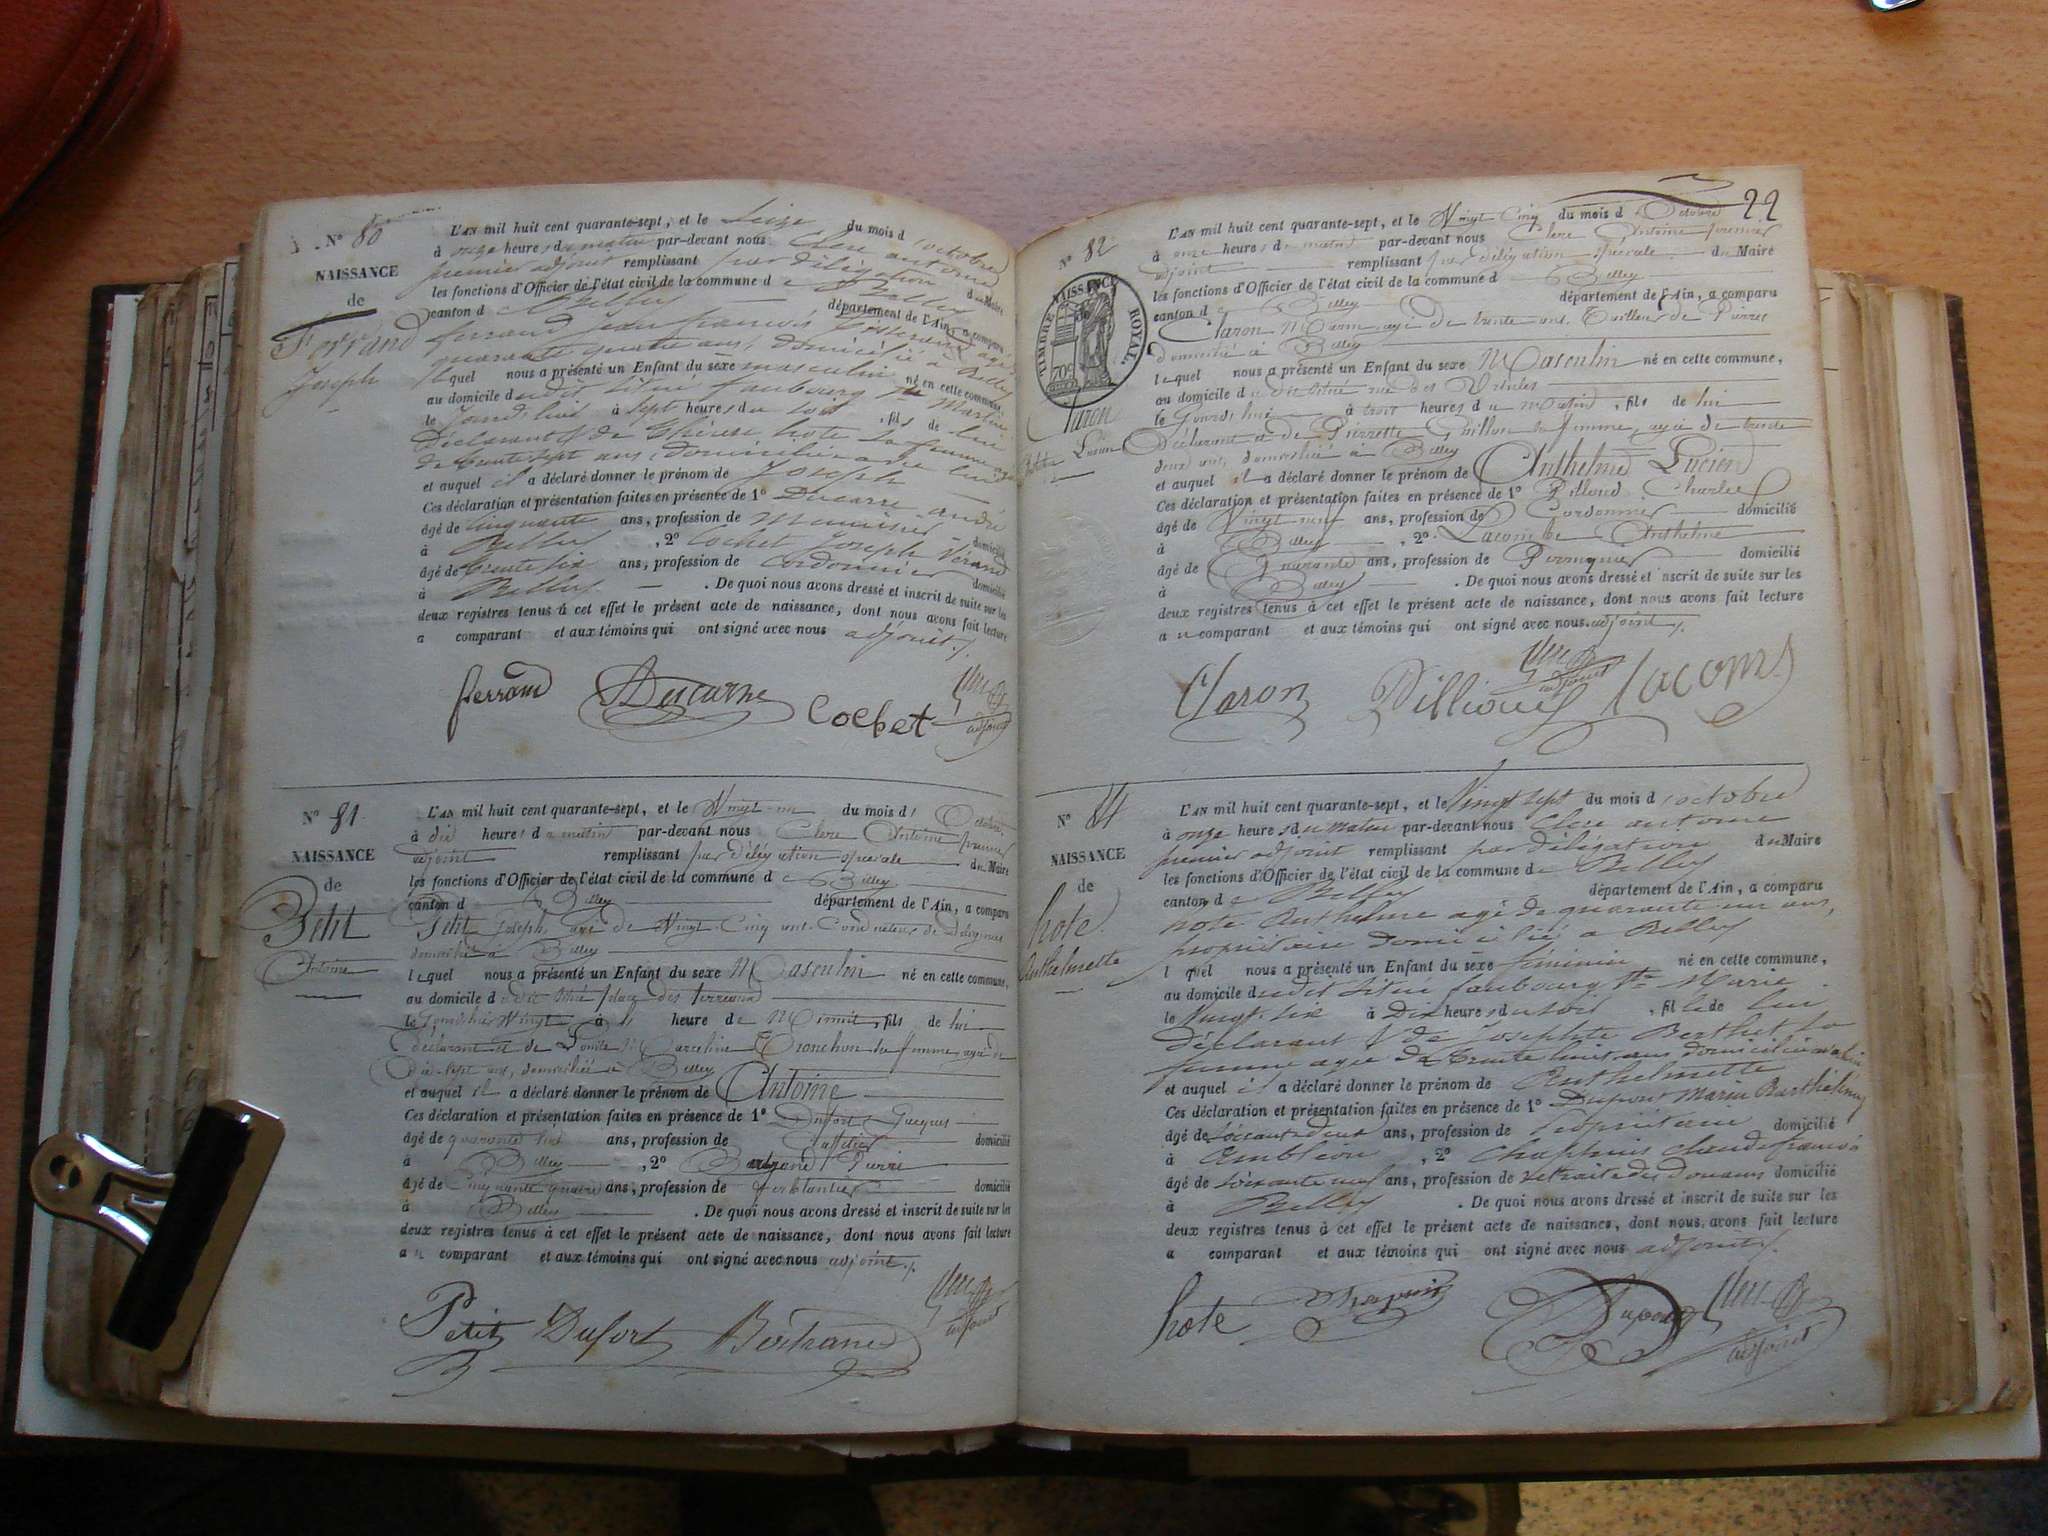 N° 80
NAISSANCE
de
Ferrand
Joseph
L'AN mil huit cent quarante-sept, et le Seize du mois d'octobre
à onze heures du matin par-devant nous Clerc antoine
premier adjoint remplissant par délégation du Maire
les fonctions d'Officier de l'état civil de la commune de Belley
canton de Belley département de l'Ain, a comparu
ferrand jean françois agé
quarante quatre ans, domicilié à Belley
lequel nous a présenté un Enfant du sexe masculin né en cette commune,
au domicile dudit situé faubourg
le jourd'hui à sept heures du soir, fils de lui
Déclarant & de hote sa femme agée
de trente sept ans, domiciliée avec lui
et auquel il a déclaré donner le prénom de Joseph
Ces déclaration et présentation faites en présence de 1° Ducarre andré
âgé de Cinquante ans, profession de Menuisier domicilié
à Belley, 2° Cochet Joseph
âgé de trente six ans, profession de Cordonnier domicilié
à Belley. De quoi nous avons dressé et inscrit de suite sur les
deux registres tenus à cet effet le présent acte de naissance, dont nous avons fait lecture
a comparant et aux témoins qui ont signé avec nous adjoint.
ferrand Ducarre Cochet Clerc adjoint
N° 81
NAISSANCE
de
Petit
Antoine
L'AN mil huit cent quarante-sept, et le Vingt-un du mois d'Octobre
à dix heures du matin par-devant nous Clerc Antoine premier
adjoint remplissant par délégation spéciale du Maire
les fonctions d'Officier de l'état civil de la commune de Belley
canton de Belley département de l'Ain, a comparu
Petit Joseph, agé de Vingt-Cinq ans Conducteur de diligences
domicilié à Belley
lequel nous a présenté un Enfant du sexe Masculin né en cette commune,
au domicile dudit situé place des terreaux
le jourd'hui Vingt à heure de Minuit, fils de lui
déclarant et de Marceline Tronchon sa femme, agée de
dix-sept ans, domiciliée à Belley
et auquel il a déclaré donner le prénom de Antoine
Ces déclaration et présentation faites en présence de 1° Dufort Jacques
âgé de quarante ans, profession de domicilié
à Belley, 2° Bertrand Pierre
âgé de Cinquante quatre ans, profession de ferblantier domicilié
à Belley. De quoi nous avons dressé et inscrit de suite sur les
deux registres tenus à cet effet le présent acte de naissance, dont nous avons fait lecture
au comparant et aux témoins qui ont signé avec nous adjoint.
Petit Dufort Bertrand Clerc adjoint
22
N° 82
TIMBRE ROYAL
NAISSANCE
70c
Claron
Lucien
L'AN mil huit cent quarante-sept, et le Vingt Cinq du mois d'Octobre
à onze heures du matin par-devant nous Clerc Antoine premier
adjoint remplissant par délégation spéciale du Maire
les fonctions d'Officier de l'état civil de la commune de Belley
canton de Belley département de l'Ain, a comparu
Claron agé de trente ans, Tailleur de Pierres
domicilié à Belley
lequel nous a présenté un Enfant du sexe Masculin né en cette commune,
au domicile dudit situé rue des
le jourd'hui à trois heures du matin, fils de lui
Déclarant et de Pierrette Guillon sa femme, agée de trente
deux ans, domiciliée à Belley
et auquel il a déclaré donner le prénom de Anthelme Lucien
Ces déclaration et présentation faites en présence de 1° Pilloud Charles
âgé de Vingt neuf ans, profession de Cordonnier domicilié
à Belley, 2° Lacombe Anthelme
âgé de Quarante ans, profession de Perruquier domicilié
à Belley. De quoi nous avons dressé et inscrit de suite sur les
deux registres tenus à cet effet le présent acte de naissance, dont nous avons fait lecture
au comparant et aux témoins qui ont signé avec nous adjoint.
Claron Clerc adjoint
N°
NAISSANCE
de
hote
Anthelmette
L'AN mil huit cent quarante-sept, et le Vingt sept du mois d'octobre
à onze heures du matin par-devant nous Clerc antoine
premier adjoint remplissant par délégation du Maire
les fonctions d'Officier de l'état civil de la commune de Belley
canton de Belley département de l'Ain, a comparu
hote Anthelme agé de quarante un ans,
propriétaire domicilié à Belley
lequel nous a présenté un Enfant du sexe féminin né en cette commune,
au domicile dudit situé faubourg Ste Marie
le Vingt-six à Dix heures du soir, fille de lui
déclarant & de Josephte Berthet sa
femme agée de trente huit ans domiciliée avec lui
et auquel il a déclaré donner le prénom de Anthelmette
Ces déclaration et présentation faites en présence de 1° Dupont Marin Barthélemy
âgé de ans, profession de propriétaire domicilié
à Ambléon, 2° Chapuis Claude françois
âgé de soixante neuf ans, profession de retraité des Douanes domicilié
à Belley. De quoi nous avons dressé et inscrit de suite sur les
deux registres tenus à cet effet le présent acte de naissance, dont nous avons fait lecture
a comparant et aux témoins qui ont signé avec nous adjoint.
hote Chapuis Dupont Clerc adjoint